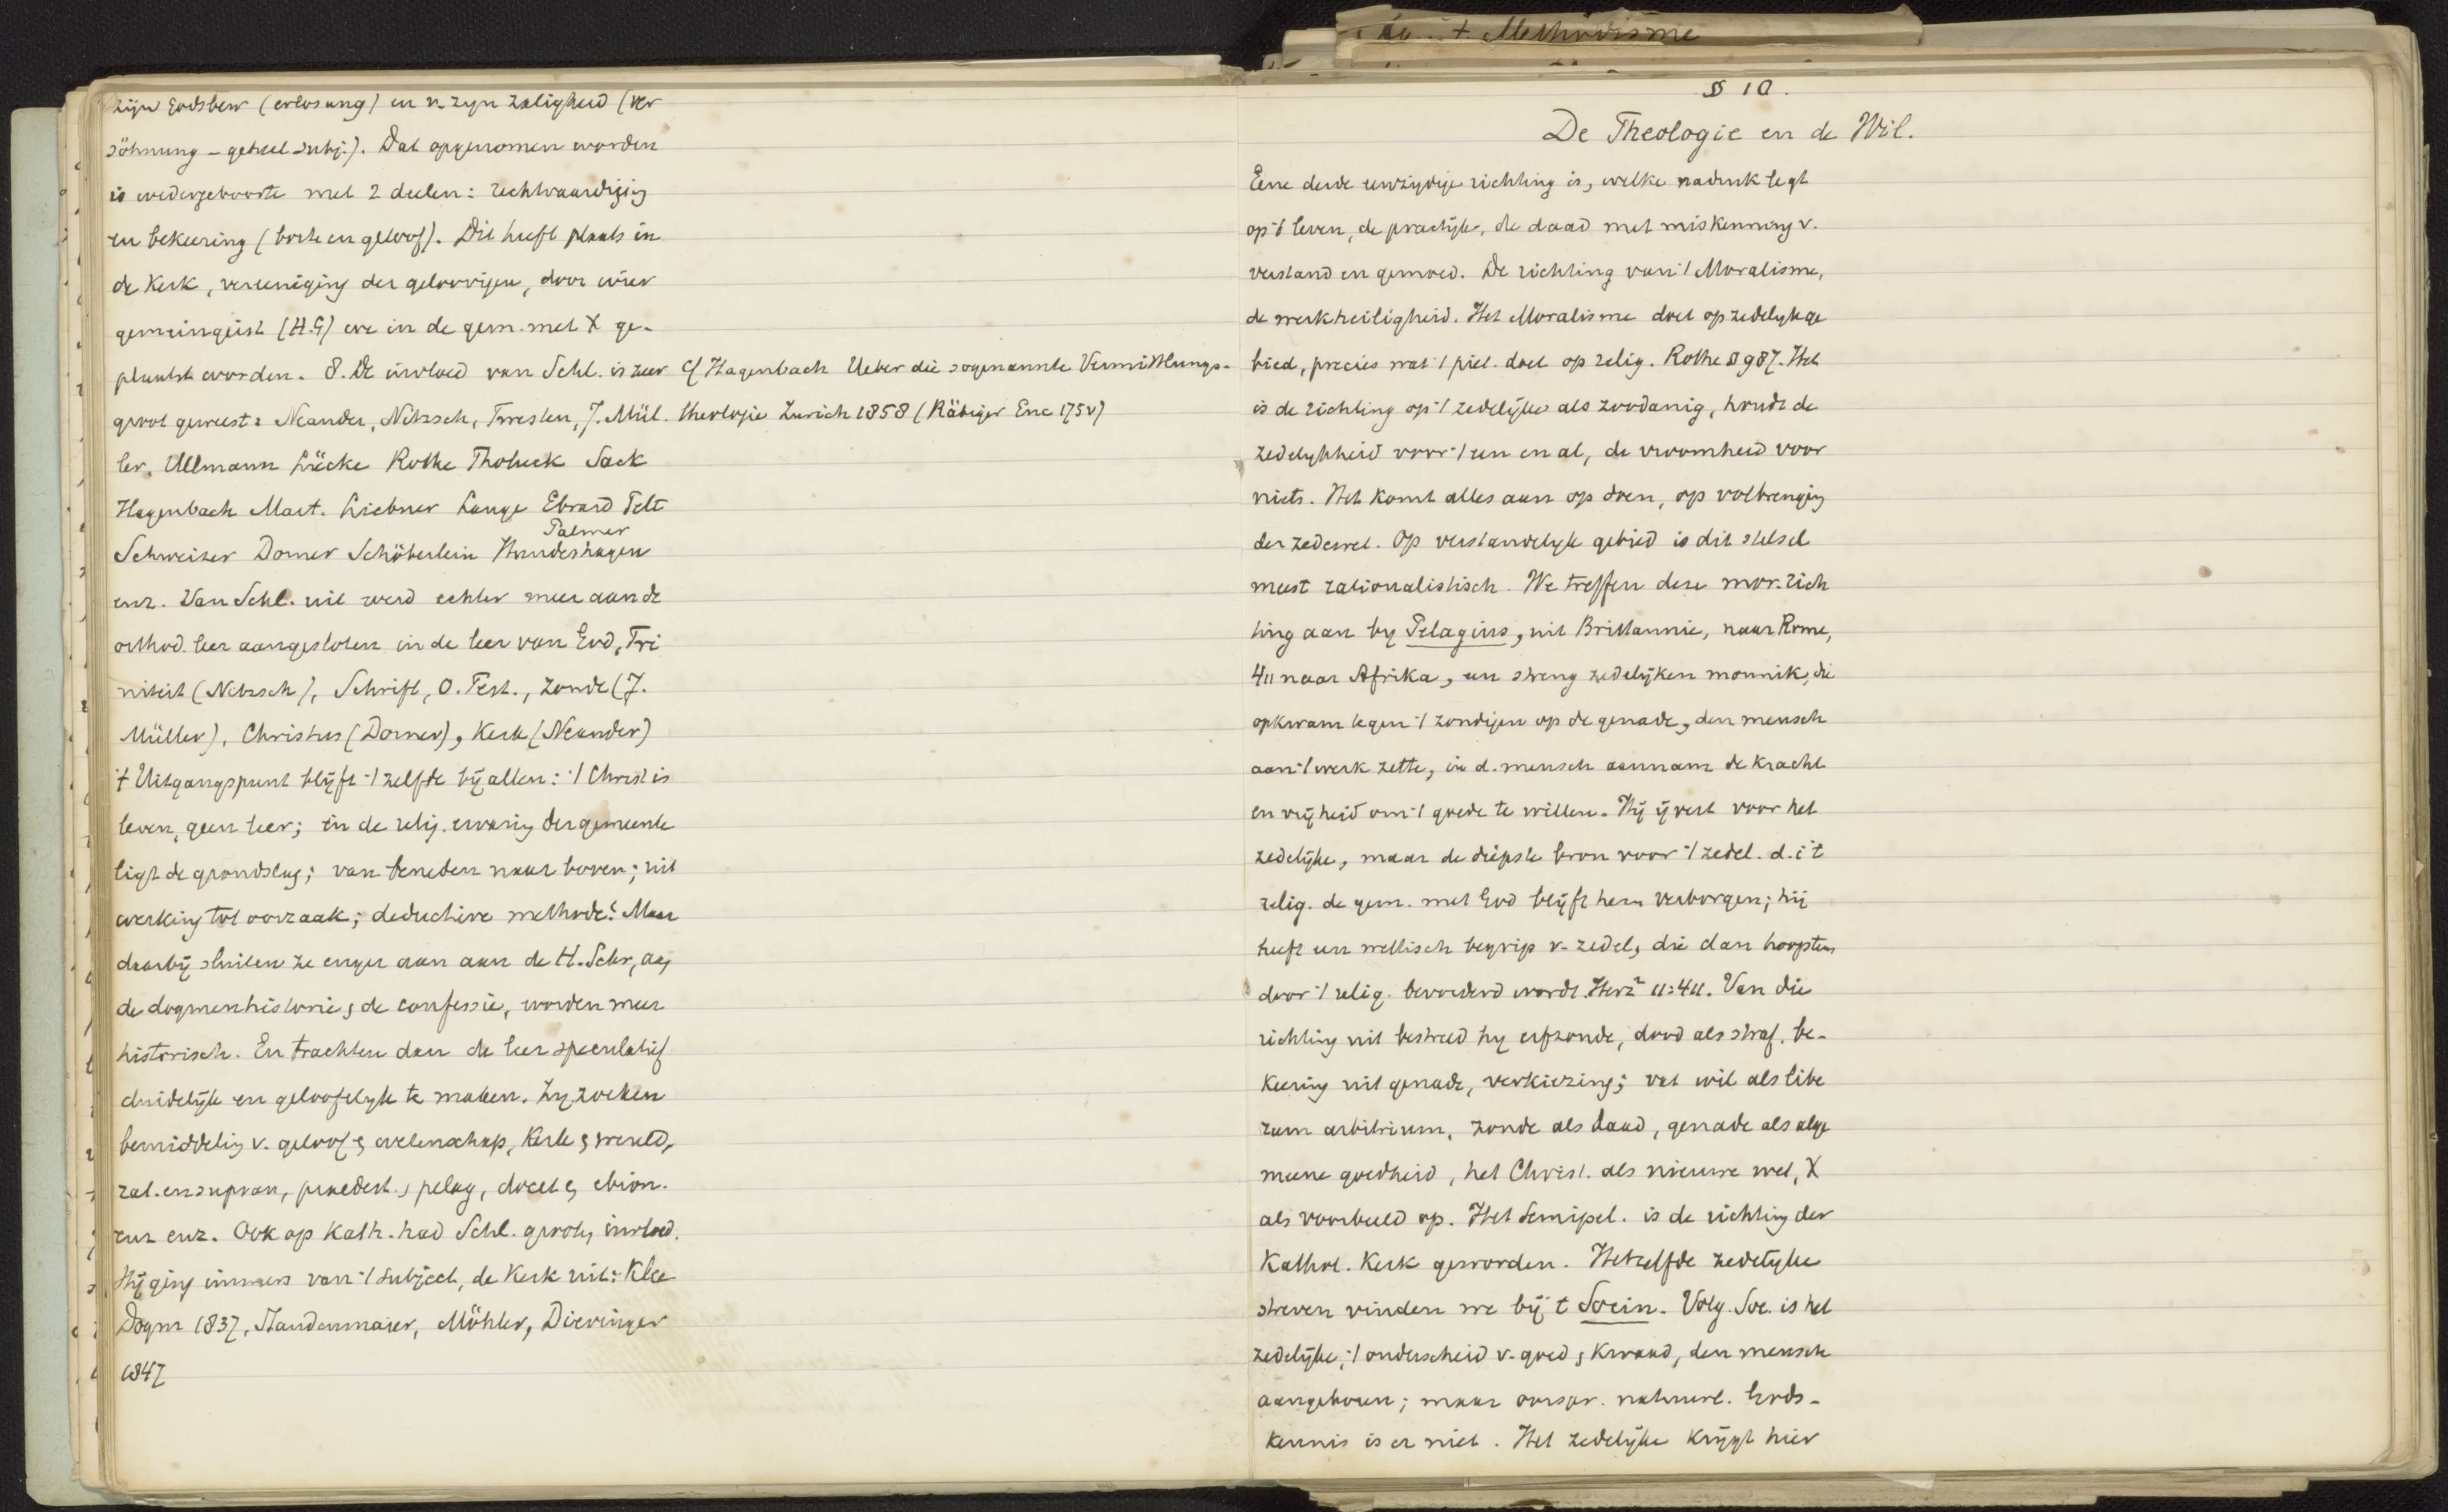 zijn Godsbew (erlosung) en v. zyn zaligheid (ver
söhnung – geheel subj.). Dat opgenomen worden
is wedergeboorte met 2 deelen: rechtvaardigig
en bekeering (boete en geloof). Dit heeft plaats in
de Kerk, vereeniging der geloovigen, door wier
gemeingeist (H.G) we in de gem. met X ge-
plaatst worden. 8. De invloed van Schl. is zeer
groot geweest: Neander, Nitzsch, Twesten, J. Mül-
ler, Ullmann Lücke Rothe Tholuck Sack
Hagenbach Mart. Liebner Lange Ebrard Pelt
Palmer
Schweizer Dorner Schöberlein Hundeshagen
enz. Van Schl. uit werd echter meer aan de
orthod. leer aangesloten in de leer van God, Tri
niteit (Nitzsch), Schrift, O. Test., Zonde (J.
Müller), Christus (Dorner), Kerk (Neander)
't Uitgangspunt blijft 't zelfde bij allen: 't Christ is
leven, geen leer; in de relig. ervarig der gemeente
ligt de grondslag; van beneden naar boven; uit
werking tot oorzaak; deductieve methode? Maar
daarbij sluiten ze enger aan aan de H. Schr, aan
de dogmenhistorie, de confessie, worden meer
historisch. En trachten dan de leer speculatief
duidelijk en geloofelyk te maken. Zy zoeken
bemiddelig v. geloof & wetenschap, Kerk & wereld,
rat. en supran, praedest. & pelag, docet & ebion.
enz enz. Ook op Kath. had Schl. grooten invloed.
Hij ging immers van 't subject, de Kerk uit: Klee
Dogm 1837, Staudenmaier, Möhler, Dieringer
1847
Cf Hagenbach Ueber die sogenannte Vermittlungs-
theologie Zurich 1858 (Räbiger Enc 175v)
+ Methodisme
§ 10.
De Theologie en de Wil.
Eene derde eenzijdige richting is, welke nadruk legt
op 't leven, de practijk, de daad met miskenning v.
verstand en gemoed. De richting van 't Moralisme,
de werkheiligheid. Het Moralisme doet op zedelyk ge
bied, precies wat 't piet. doet op relig. Rothe § 987. Het
is de richting op 't zedelijke als zoodanig, houdt de
zedelykheid voor 't een en al, de vroomheid voor
niets. Het komt alles aan op doen, op volbrenging
der zedewet. Op verstandelyk gebied is dit stelsel
meest rationalistisch. We treffen deze mor. rich
ting aan by Pelagius, uit Brittannie, naar Rome,
411 naar Afrika, een streng zedelijken monnik, die
opkwam tegen 't zondigen op de genade, den mensch
aan 't werk zette, in d. mensch aannam de kracht
en vrijheid om 't goede te willen. Hij ijvert voor het
zedelijke, maar de diepste bron voor 't zedel. d.i 't
relig. de gem. met God blijft hem verborgen; hij
heeft een wettisch begrip v. zedel, die dan hoogstens
door 't relig. bevorderd wordt. Herz² 11:411. Van die
richting uit bestreed hy erfzonde, dood als straf, be-
keering uit genade, verkiezing; vat wil als libe
rum arbitrium, zonde als daad, genade als alge
meene goedheid, het Christ. als nieuwe wet, X
als voorbeeld op. Het Semipel. is de richting der
Kathol. Kerk geworden. Hetzelfde zedelyke
streven vinden we bij 't Socin. Volg. Soc. is het
zedelijke, 't onderscheid v. goed & kwaad, den mensch
aangeboren; maar oorspr. natuurl. Gods-
kennis is er niet. Het zedelijke krijgt hier